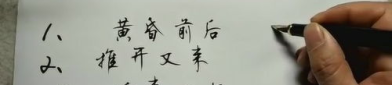 1、 黄昏前后
2、 推开又来